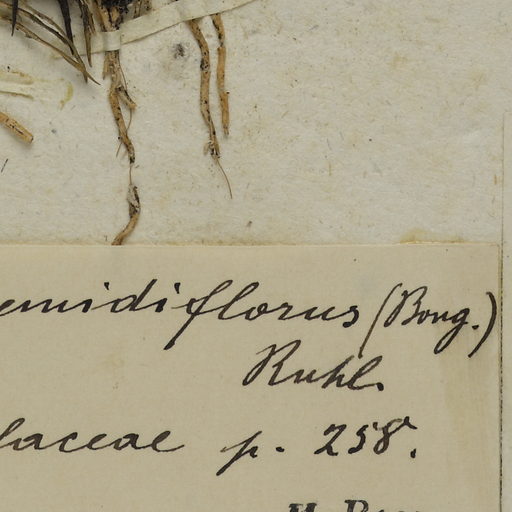 emidiflorus (Bong.)
Ruhl.
laceae p. 258.